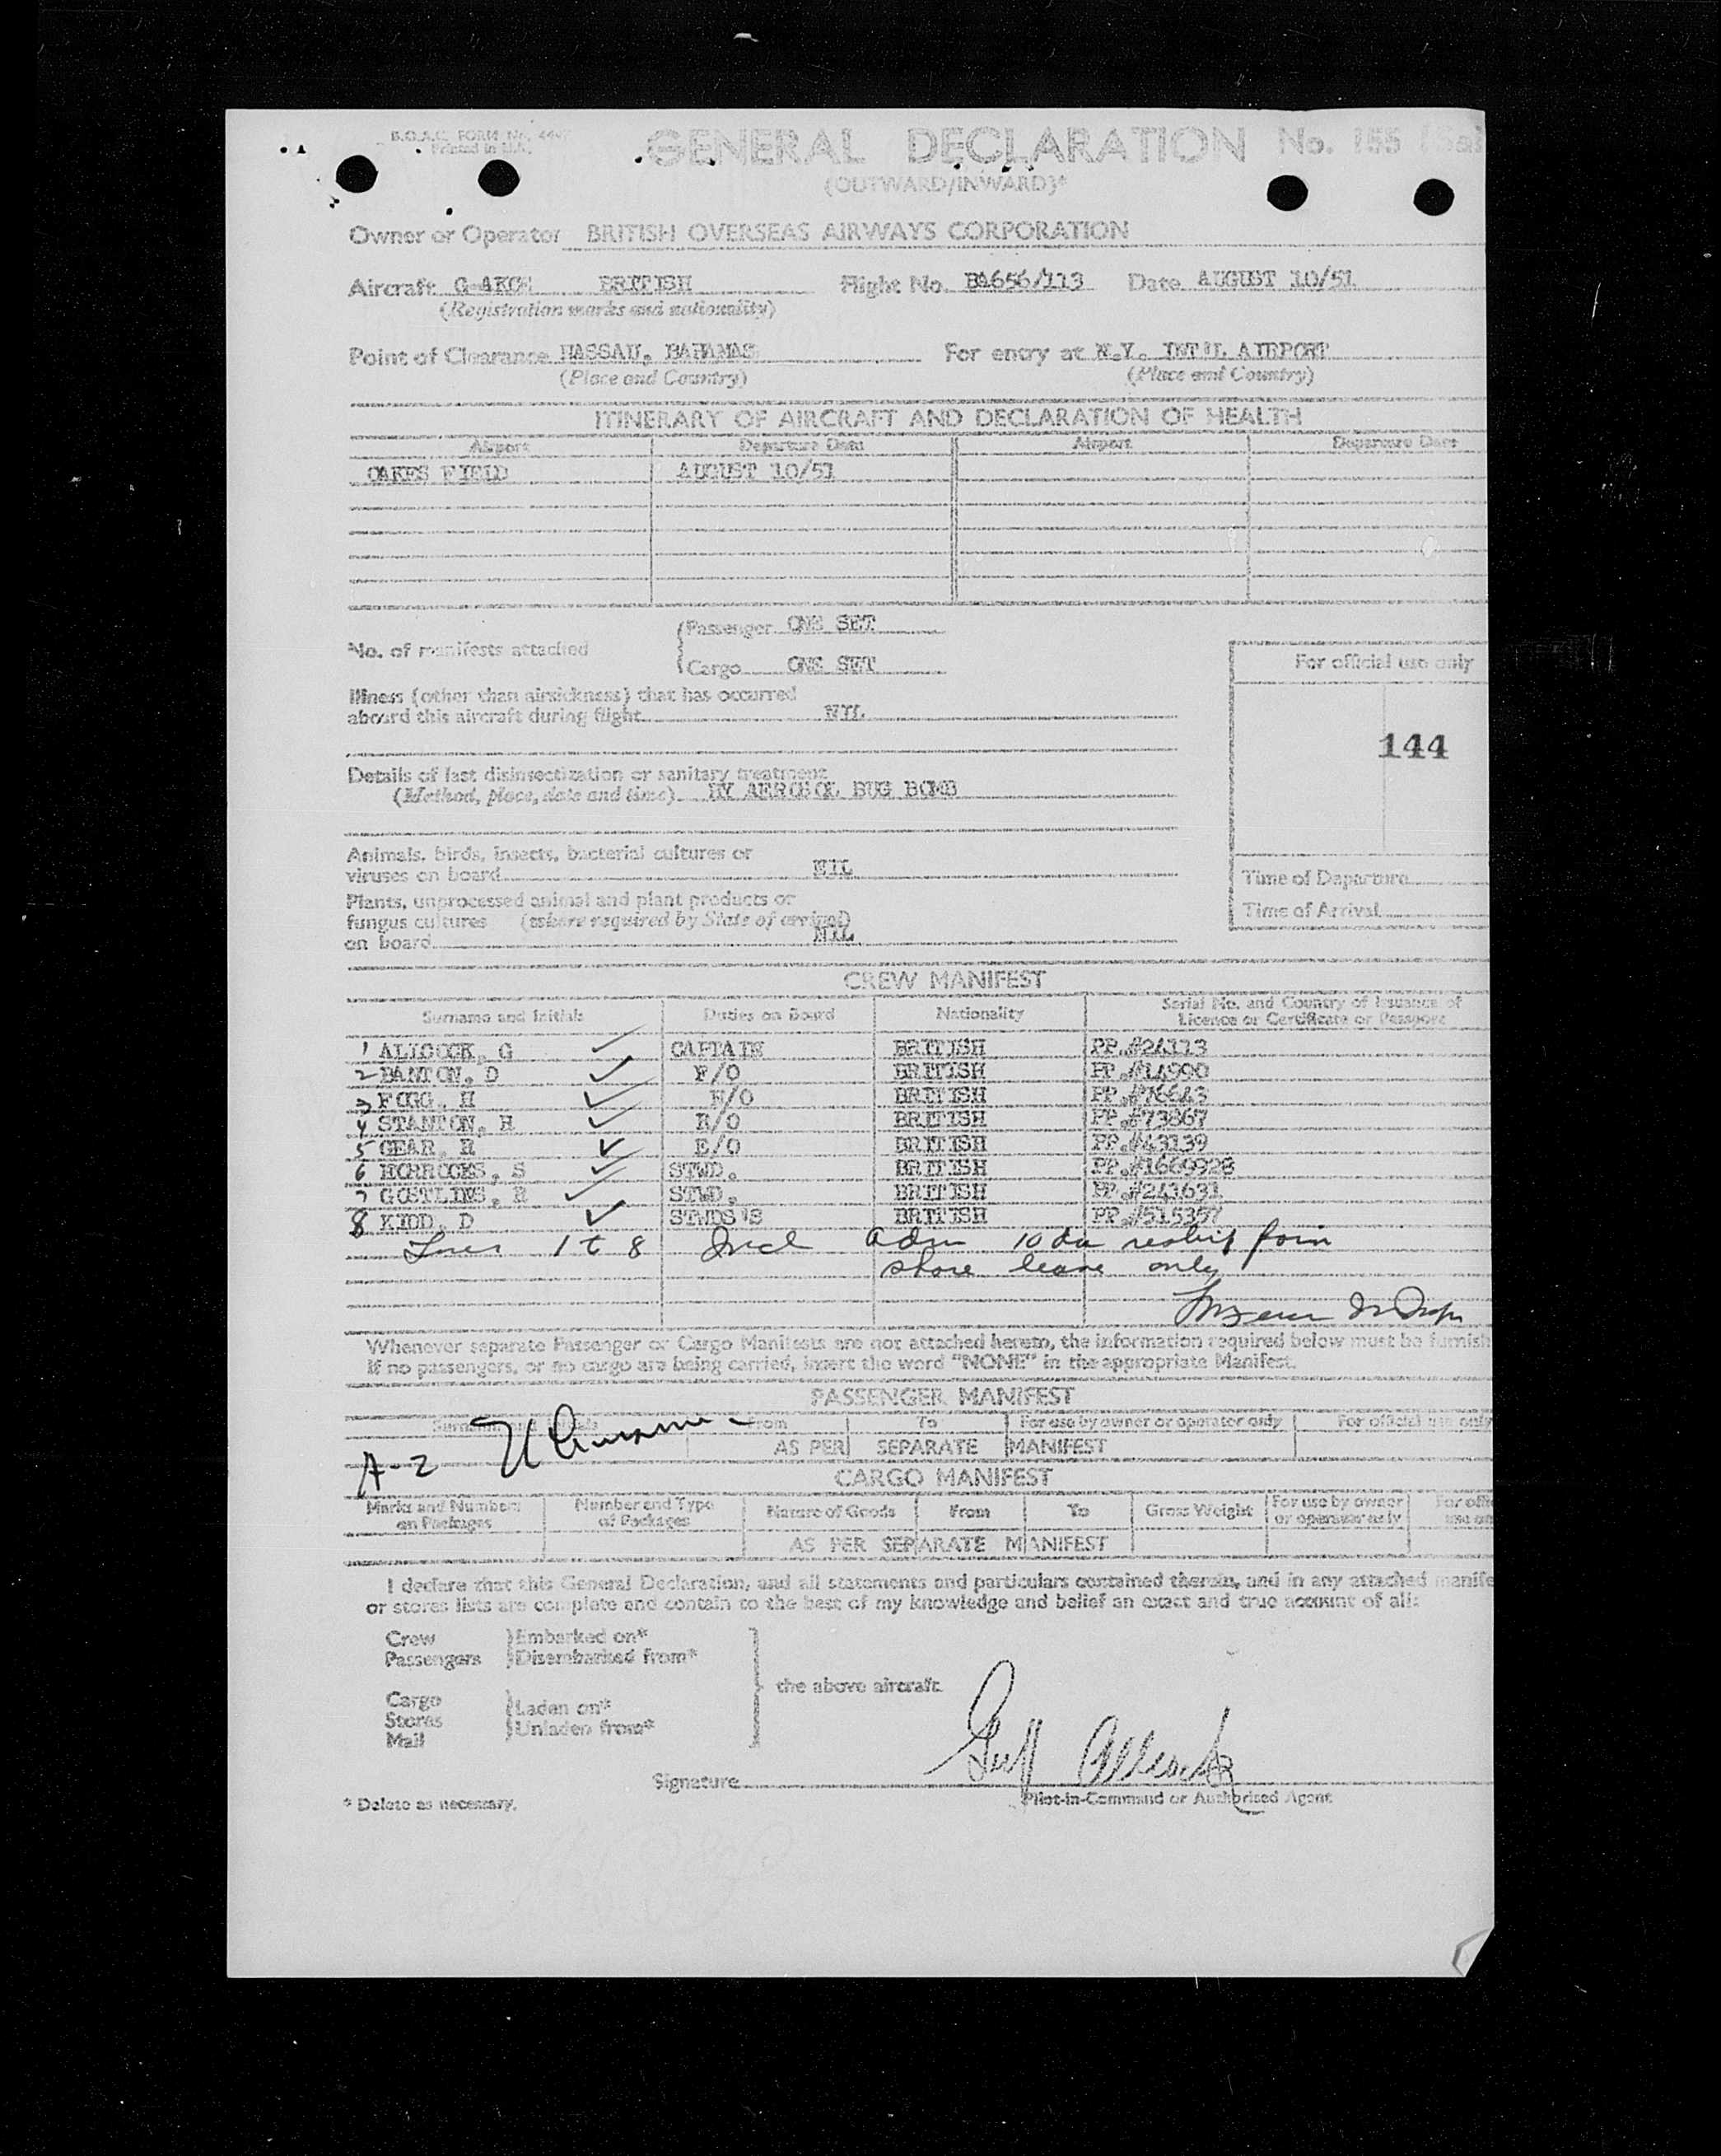 B.O.A.C. FORM No.
Printed in U.K.
GENERAL DECLARATION No. 155
(OUTWARD/INWARD)*
Owner or Operator BRITISH OVERSEAS AIRWAYS CORPORATION
Aircraft BRITISH Flight No. BA656/113 Date AUGUST 10/51
(Registration marks and nationality)
Point of Clearance NASSAU, BAHAMAS For entry at N.Y. INT'L AIRPORT
(Place and Country) (Place and Country)
ITINERARY OF AIRCRAFT AND DECLARATION OF HEALTH
Airport Departure Date Airport Departure Date
OAKES FIELD AUGUST 10/51
No. of manifests attached
Passenger ONE SET
Cargo ONE SET
For official use only
Illness (other than airsickness) that has occurred
aboard this aircraft during flight NIL
144
Details of last disinsectization or sanitary treatment
(Method, place, date and time) BY AEROSOL BUG BOMB
Animals, birds, insects, bacterial cultures or
viruses on board NIL
Time of Departure
Plants, unprocessed animal and plant products or
fungus cultures (where required by State of arrival)
on board NIL
Time of Arrival
CREW MANIFEST
Surname and Initials Duties on Board Nationality Serial No. and Country of Issuance of
Licence or Certificate or Passport
1 ALLCOCK, G CAPTAIN BRITISH PP.#24113
2 BANTON, D F/O BRITISH PP.#14990
3 FOGG, H N/O BRITISH PP.#76643
4 STANTON, H R/O BRITISH PP.#73867
5 GEAR, R E/O BRITISH PP.#43139
6 HORROCKS, S STWD. BRITISH PP.#1669928
7 GOSTLING, R STWD. BRITISH PP.#241631
8 KIDD, D STWDS'S BRITISH PP.#515357
Lines 1 to 8 Incl adm 10 da reship foin
shore leave only
Whenever separate Passenger or Cargo Manifests are not attached hereto, the information required below must be furnish
If no passengers, or no cargo are being carried, insert the word "NONE" in the appropriate Manifest.
PASSENGER MANIFEST
Surname and Initials From To For use by owner or operator only For official use only
AS PER SEPARATE MANIFEST
A-2
CARGO MANIFEST
Marks and Numbers on Packages Number and Type of Packages Nature of Goods From To Gross Weight For use by owner or operator only For offic use on
AS PER SEPARATE MANIFEST
I declare that this General Declaration, and all statements and particulars contained therein, and in any attached manife
or stores lists are complete and contain to the best of my knowledge and belief an exact and true account of all:
Crew Embarked on*
Passengers Disembarked from*
the above aircraft.
Cargo Laden on*
Stores Unladen from*
Mail
Signature Allcock
* Delete as necessary. Pilot-in-Command or Authorised Agent